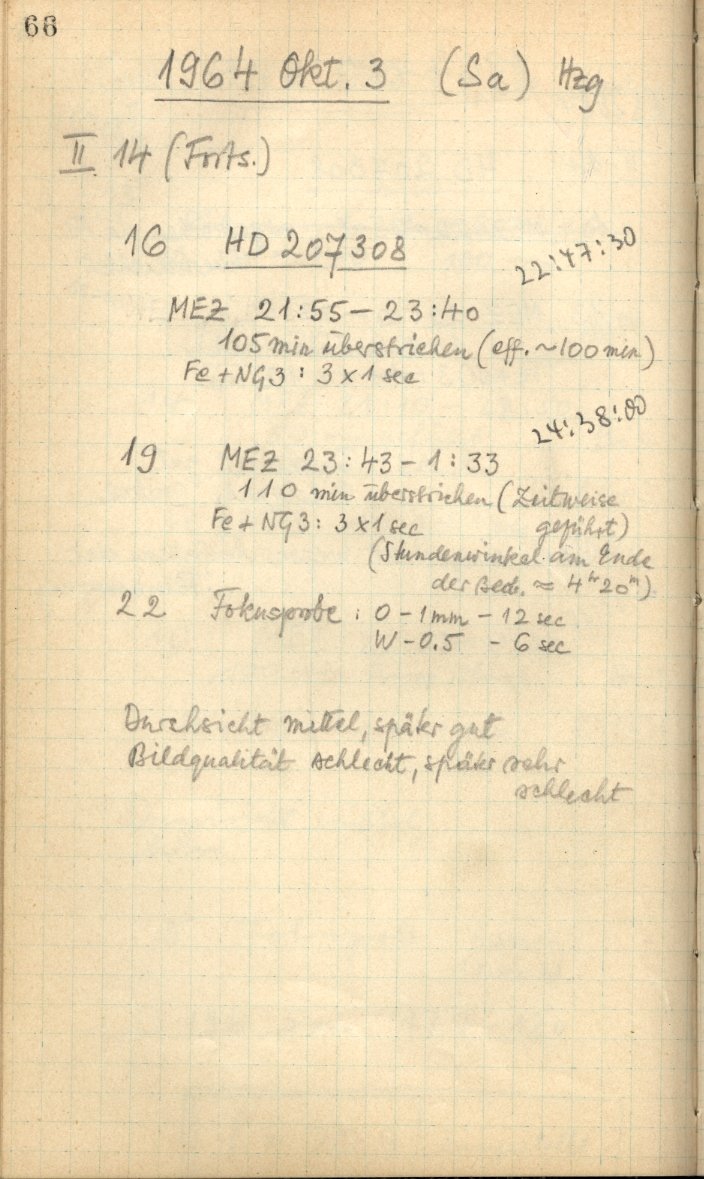 66
1964 Okt. 3 (Sa) Hzg
II 14 (Forts.)
16 HD 207308
22:47:30
MEZ 21:55 – 23:40
105 min überstrichen (eff. ~100 min)
Fe + NG3 : 3 x 1 sec
24:38:00
19 MEZ 23:43 – 1:33
110 min überstrichen (Zeitweise
Fe + NG3 : 3 x 1 sec geführt)
(Stundenwinkel am Ende
der Beob. ≈ 4ʰ20ᵐ)
22 Fokusprobe : O – 1mm – 12 sec
W – 0.5 – 6 sec
Durchsicht mittel, später gut
Bildqualität schlecht, später sehr
schlecht